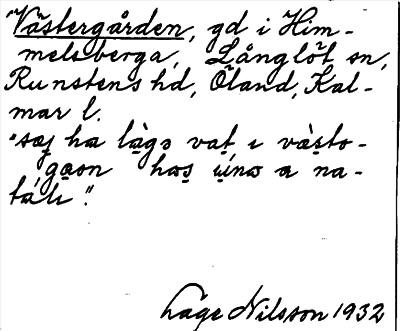 "Västergården, gd i Him-
melsberga, Långlöt sn,
Runstens hd, Öland, Kal-
mar l.
"sæj ha làgə vat ı væ̀sto-
gaɒn hos ına ɒ na-
táli".
Lage Nilsson 1932